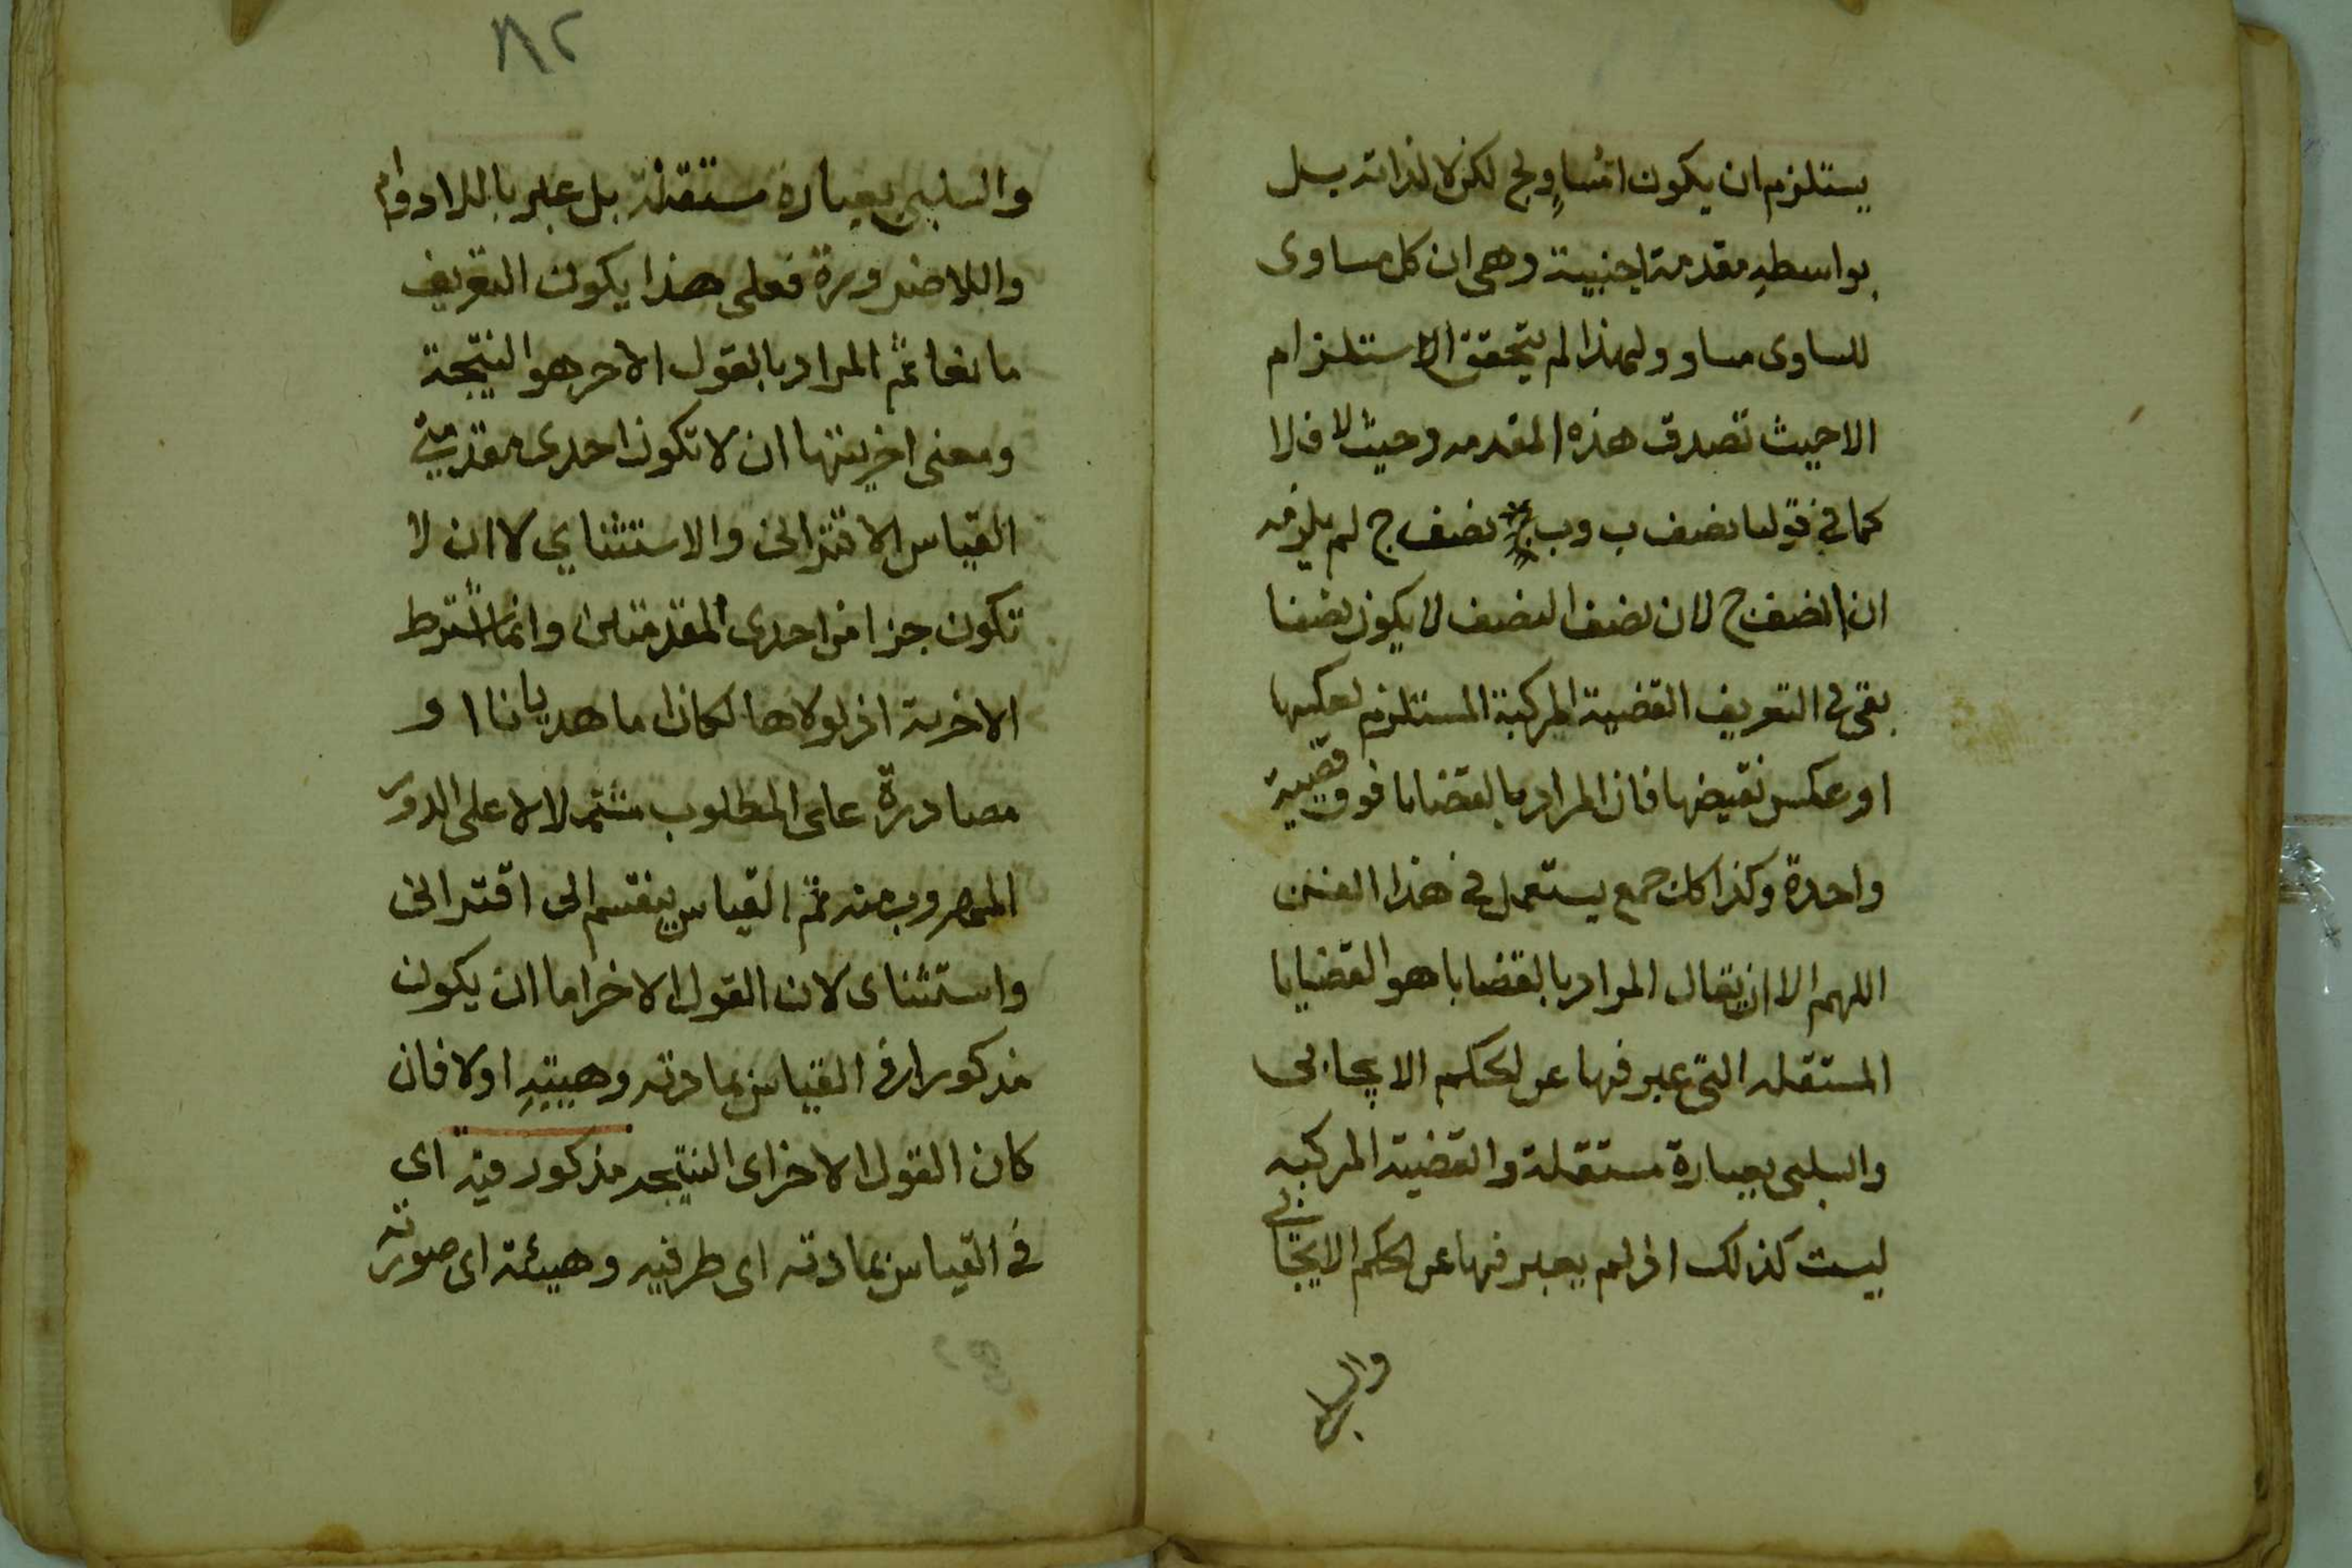 يستلزم ان يكون امساو لج لكن لا لذاته بل
بواسطه مقدمة اجنبية وهى ان كل مساوى
للمساوى مساو ولهذا لم يتحقق الاستلزام
الا حيث تصدق هذه المقدمه وحيث لا فلا
كما فى قولنا نصف ب وب نصف ج لم يلزمه
ان انصف ج لان نصف النصف لا يكون نصفا
بقى فى التعريف القضية المركبة المستلزم لعكسها
او عكس نقيضها فان المراد بالقضايا فوق قضية
واحدة وكذا كل جمع يستعمل فى هذا الفن
اللهم الا ان يقال المراد بالقضايا هو القضايا
المستقله التى عبر فيها عن الحكم الايجابى
والسلبى بعبارة مستقلة والقضية المركبه
ليست كذلك اذ لم يعبر فيها عن الحكم الايجابى
والسلبى
٨٢
والسلبى بعبارة مستقلة بل عبر باللادوام
واللاضرورة فعلى هذا يكون التعريف
مانعا ثم المراد بالقول الاخر هو النتيجة
ومعنى اخريتها ان لا تكون احدى مقدمتي
القياس الاقترانى والاستثناي لا ان لا
تكون جزا من احدى المقدمتين وانما اشترط
الاخرية اذ لولاها لكان اما هديانا او
مصادرة على المطلوب مشتملا على الدور
المهروب منه ثم القياس ينقسم الى اقترانى
واستثناى لان القول الاخر اما ان يكون
مذكورا فى القياس بمادته وهييته اولا فان
كان القول الاخر اى النتيجه مذكور فيه اى
فى القياس بمادته اى طرفيه وهيئة اى صورته